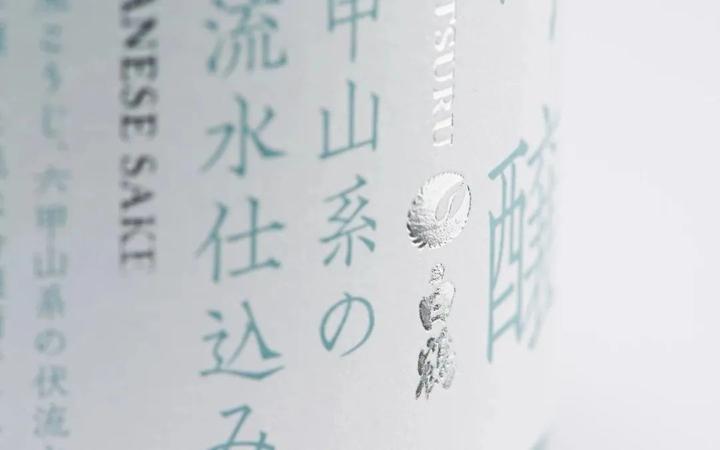 醸
TSURU
白鶴
甲山系の
流水仕込み
ANESE SAKE
こうじ、六甲山系の伏流